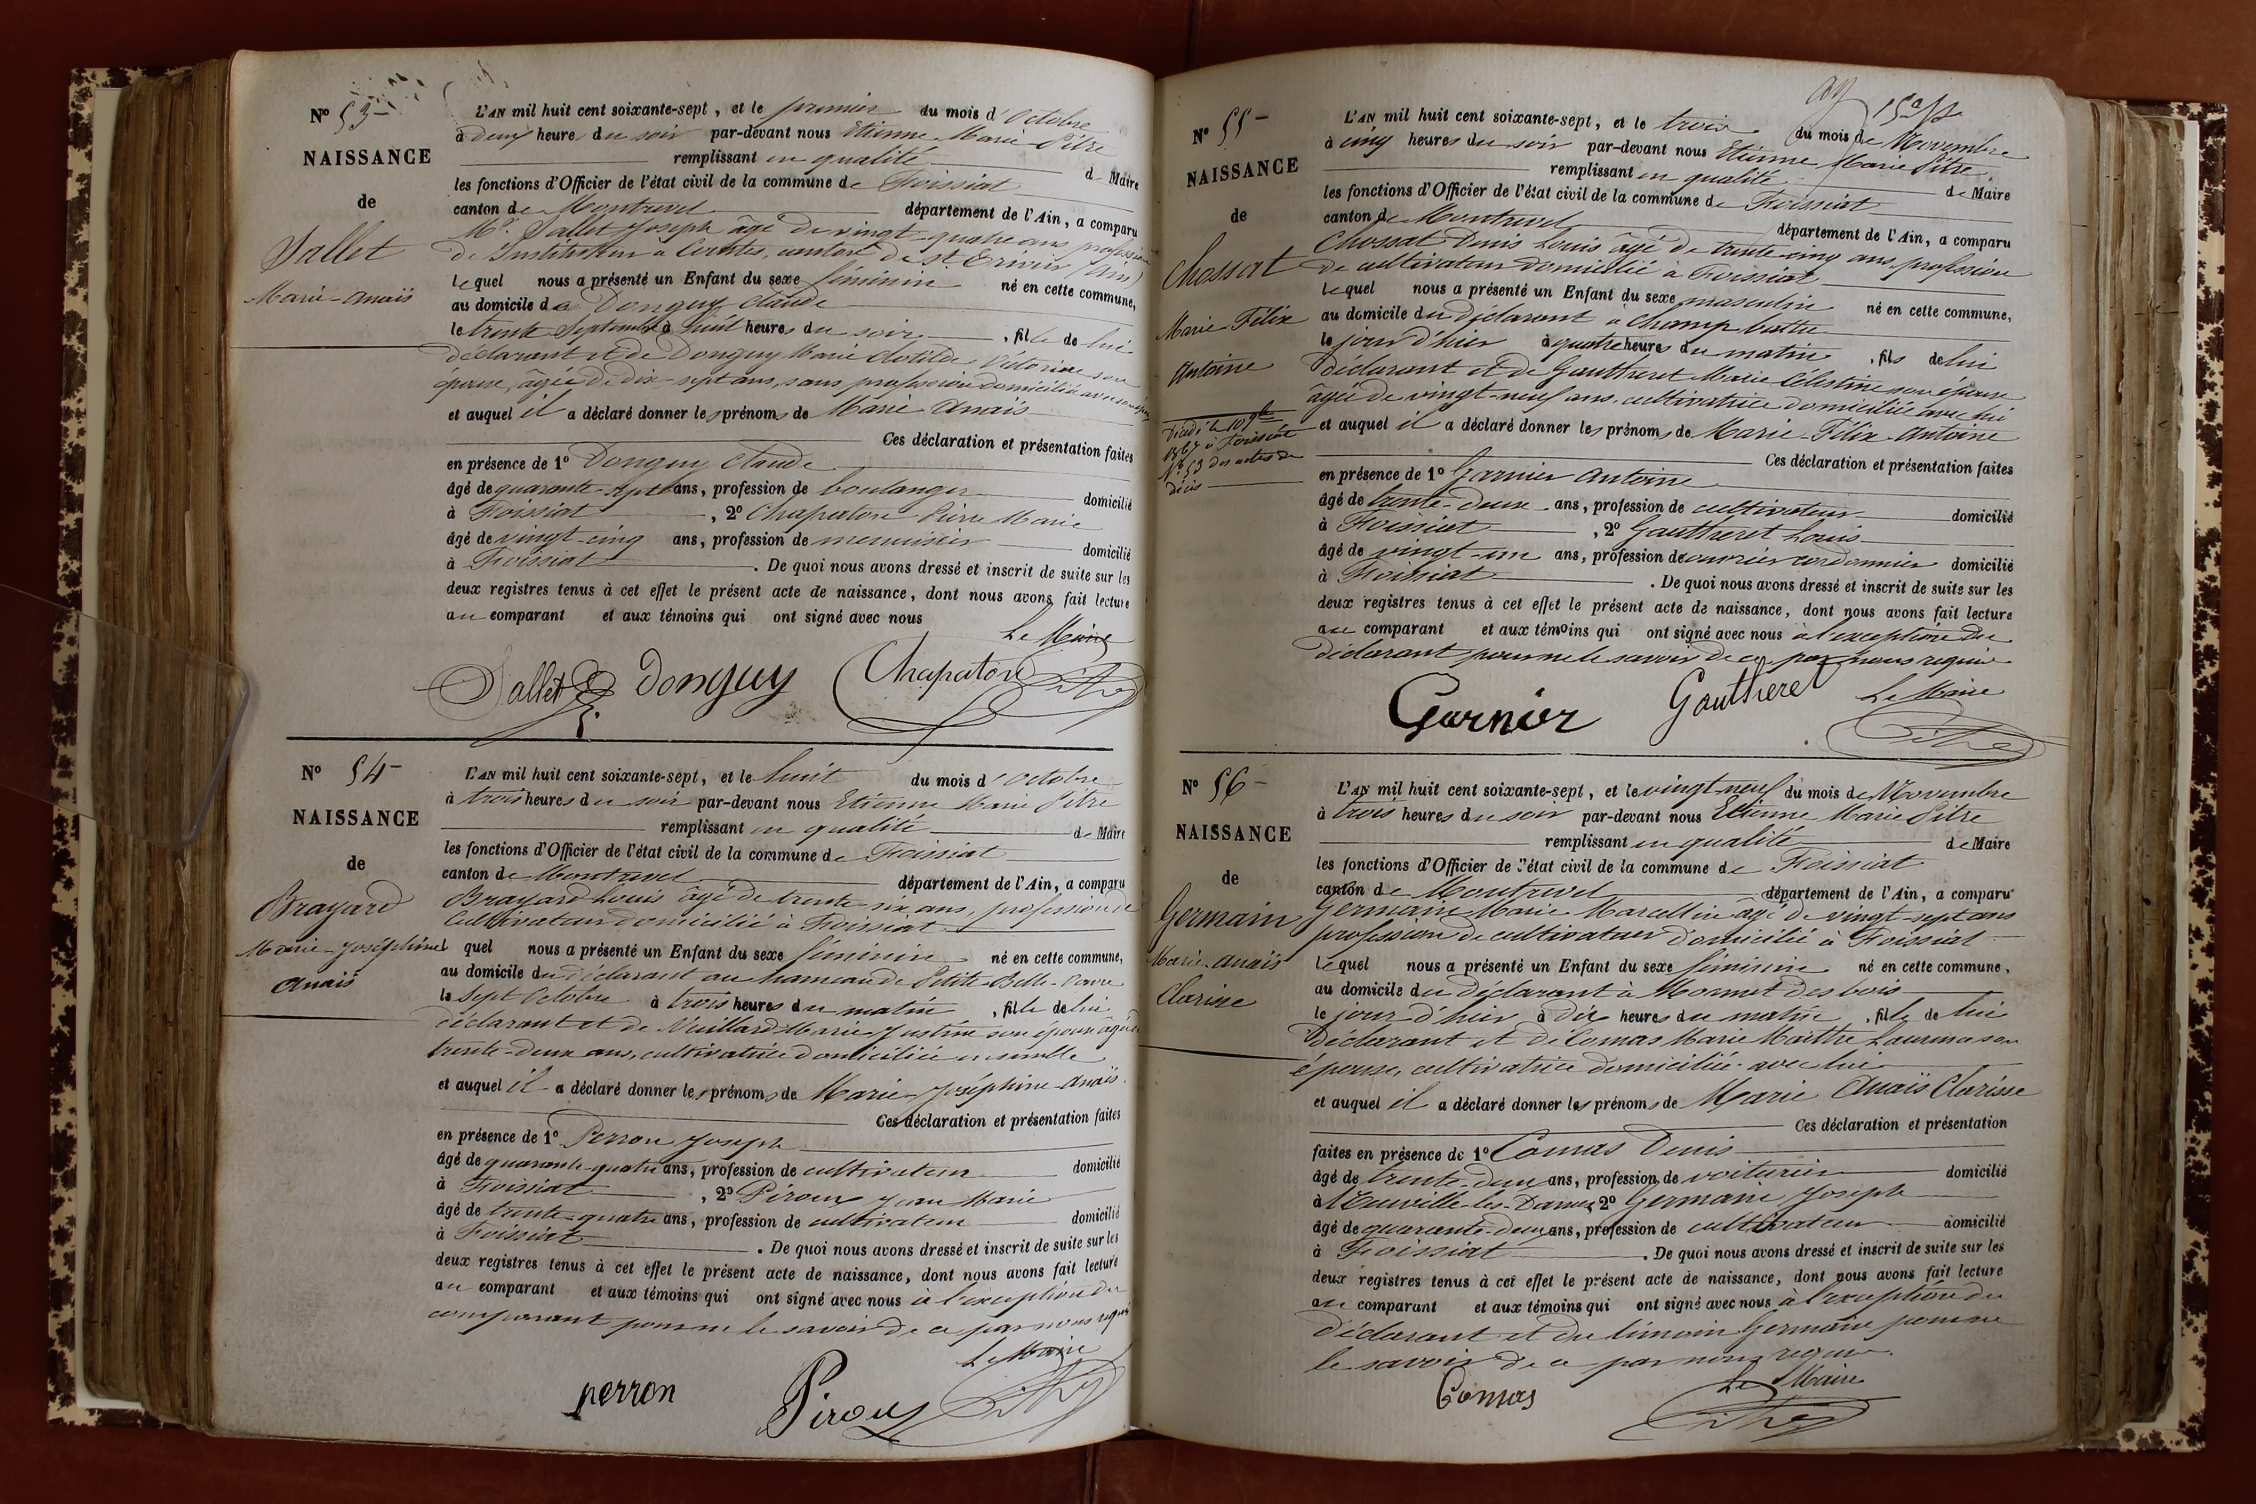 Nº 53
NAISSANCE
de
Sallet
Marie-Anaïs
L'AN mil huit cent soixante-sept, et le premier du mois d'Octobre
à deux heures du soir par-devant nous Etienne Marie Pitre
remplissant en qualité de Maire
les fonctions d'Officier de l'état civil de la commune de Foissiat
canton de Montrevel département de l'Ain, a comparu
Mr. Sallet Joseph âgé de vingt-quatre ans profession
de Instituteur à canton de St Trivier (Ain)
lequel nous a présenté un Enfant du sexe féminin né en cette commune,
au domicile de Donguy Claude
le trente Septembre à huit heures du soir, fille de lui
déclarant et de Donguy Marie Clotilde Victorine son
épouse, âgée de dix-sept ans, sans profession domiciliée avec son
et auquel il a déclaré donner les prénoms de Marie Anaïs
Ces déclaration et présentation faites
en présence de 1º Donguy Claude
âgé de quarante-sept ans, profession de boulanger domicilié
à Foissiat, 2º Chapaton Pierre Marie
âgé de vingt-cinq ans, profession de menuisier domicilié
à Foissiat. De quoi nous avons dressé et inscrit de suite sur les
deux registres tenus à cet effet le présent acte de naissance, dont nous avons fait lecture
au comparant et aux témoins qui ont signé avec nous
Le Maire
Sallet Donguy Chapaton Pitre
Nº 54
NAISSANCE
de
Brayard
Marie-Joséphine
Anaïs
L'AN mil huit cent soixante-sept, et le huit du mois d'Octobre
à trois heures du soir par-devant nous Etienne Marie Pitre
remplissant en qualité de Maire
les fonctions d'Officier de l'état civil de la commune de Foissiat
canton de Montrevel département de l'Ain, a comparu
Brayard Louis âgé de trente-six ans, profession de
cultivateur domicilié à Foissiat
lequel nous a présenté un Enfant du sexe féminin né en cette commune,
au domicile du déclarant au hameau de Petite-Belle-
le sept Octobre à trois heures du matin, fille de lui
déclarant et de Vuillard Marie Justine son épouse âgée de
trente-deux ans, cultivatrice domiciliée ensemble
et auquel il a déclaré donner les prénoms de Marie-Joséphine-Anaïs.
Ces déclaration et présentation faites
en présence de 1º Perron Joseph
âgé de quarante-quatre ans, profession de cultivateur domicilié
à Foissiat, 2º Piroux Jean Marie
âgé de trente-quatre ans, profession de cultivateur domicilié
à Foissiat. De quoi nous avons dressé et inscrit de suite sur les
deux registres tenus à cet effet le présent acte de naissance, dont nous avons fait lecture
au comparant et aux témoins qui ont signé avec nous à l'exception du
comparant pour ne le savoir de ce par nous requis
Le Maire
perron Piroux Pitre
Nº 55
NAISSANCE
de
Chossat
Marie-Félix
Antoine
Décédé le 10 9bre
1867 à Foissiat
Nº 53 des actes de
décès
L'AN mil huit cent soixante-sept, et le trois du mois de Novembre
à cinq heures du soir par-devant nous Etienne Marie Pitre
remplissant en qualité de Maire
les fonctions d'Officier de l'état civil de la commune de Foissiat
canton de Montrevel département de l'Ain, a comparu
Chossat Denis Louis âgé de trente-cinq ans, profession
de cultivateur domicilié à Foissiat
lequel nous a présenté un Enfant du sexe masculin né en cette commune,
au domicile du déclarant à Champ
le jour d'hier à quatre heures du matin, fils de lui
déclarant et de Gauttheret Marie Célestine son épouse
âgée de vingt-neuf ans, cultivatrice domiciliée avec lui
et auquel il a déclaré donner les prénoms de Marie-Félix-Antoine
Ces déclaration et présentation faites
en présence de 1º Garnier Antoine
âgé de trente-deux ans, profession de cultivateur domicilié
à Foissiat, 2º Gauttheret Louis
âgé de vingt-un ans, profession de ouvrier cordonnier domicilié
à Foissiat. De quoi nous avons dressé et inscrit de suite sur les
deux registres tenus à cet effet le présent acte de naissance, dont nous avons fait lecture
au comparant et aux témoins qui ont signé avec nous à l'exception du
déclarant pour ne le savoir de ce par nous requis
Le Maire
Garnier Gauttheret Pitre
Nº 56
NAISSANCE
de
Germain
Marie-Anaïs
Clarisse
L'AN mil huit cent soixante-sept, et le vingt-neuf du mois de Novembre
à trois heures du soir par-devant nous Etienne Marie Pitre
remplissant en qualité de Maire
les fonctions d'Officier de l'état civil de la commune de Foissiat
canton de Montrevel département de l'Ain, a comparu
Germain Marie Marcellin âgé de vingt-sept ans
profession de cultivateur domicilié à Foissiat
lequel nous a présenté un Enfant du sexe féminin né en cette commune,
au domicile du déclarant à des bois
le jour d'hier à dix heures du matin, fille de lui
déclarant et de Comas Marie Marthe son
épouse, cultivatrice domiciliée avec lui
et auquel il a déclaré donner les prénoms de Marie Anaïs Clarisse
Ces déclaration et présentation
faites en présence de 1º Comas Denis
âgé de trente-deux ans, profession de voiturier domicilié
à Neuville-les-Dames, 2º Germain Joseph
âgé de quarante-deux ans, profession de cultivateur domicilié
à Foissiat. De quoi nous avons dressé et inscrit de suite sur les
deux registres tenus à cet effet le présent acte de naissance, dont nous avons fait lecture
au comparant et aux témoins qui ont signé avec nous à l'exception du
déclarant et du témoin Germain pour ne
le savoir de ce par nous requis.
Le Maire
Comas Pitre